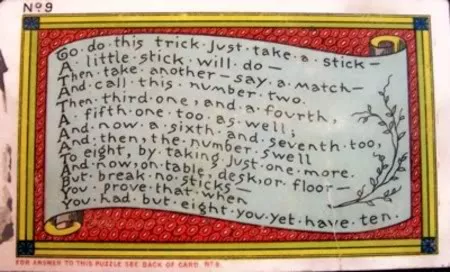 No 9
Go do this trick just take a stick—
A little stick will do—
Then take another—say a match—
And call this number two.
Then third one, and a fourth,
A fifth one too as well,
And now a sixth and seventh too,
And then, the number swell
To eight, by taking just one more.
And now, on table, desk, or floor—
But break no sticks—
You prove that when
You had but eight you yet have ten.
FOR ANSWER TO THIS PUZZLE SEE BACK OF CARD No